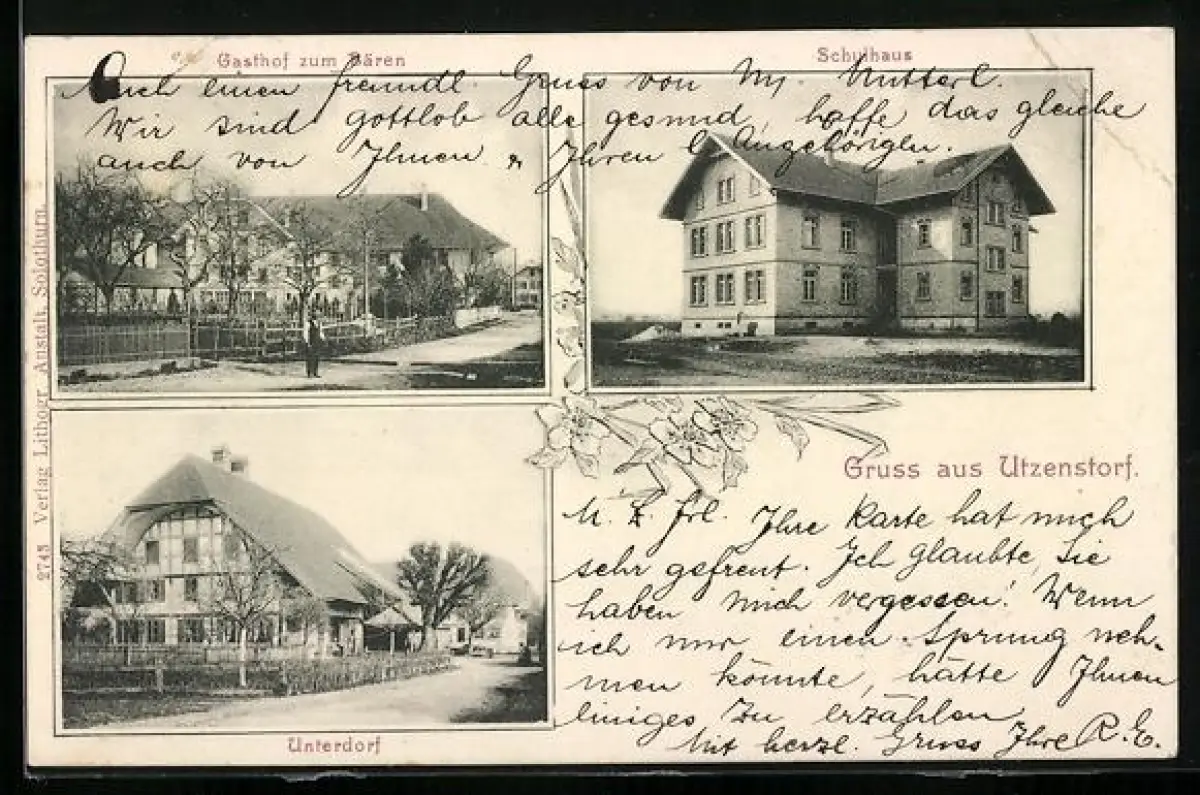 Gasthof zum Bären
Schulhaus
Auch einen freundl. Gruss von M. Mutterl.
Wir sind gottlob alle gesund, hoffe das gleiche
auch von Ihnen & Ihren Angehörigen.
2743 Verlag Lithogr. Anstalt, Solothurn.
Gruss aus Utzenstorf.
M. L. Frl. Ihre Karte hat mich
sehr gefreut. Ich glaubte, Sie
haben mich vergessen! Wenn
ich nur einen Sprung neh-
men könnte, hätte Ihnen
einiges zu erzählen
Mit herzl. Gruss Ihre R. E.
Unterdorf